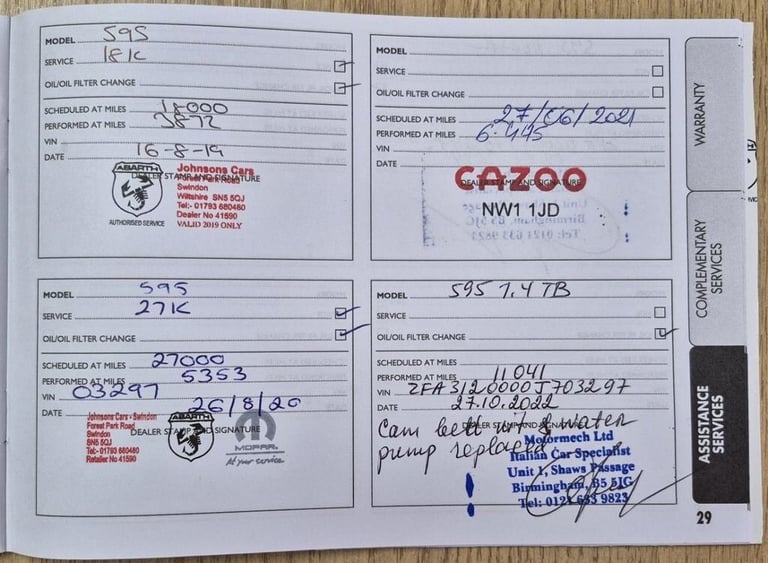 MODEL 595
SERVICE 18K
OIL/OIL FILTER CHANGE
SCHEDULED AT MILES 18000
PERFORMED AT MILES 3872
VIN
DATE 16-8-19
DEALER STAMP AND SIGNATURE
ABARTH
AUTHORISED SERVICE
Johnsons Cars
Forest Park Road
Swindon
Wiltshire SN5 5QJ
Tel:- 01793 680480
Dealer No 41590
VALID 2019 ONLY
MODEL
SERVICE
OIL/OIL FILTER CHANGE
SCHEDULED AT MILES 27/06/2021
PERFORMED AT MILES 6.445
VIN
DATE
CAZOO
DEALER STAMP AND SIGNATURE
NW1 1JD
MODEL 595
SERVICE 27K
OIL/OIL FILTER CHANGE
SCHEDULED AT MILES 27000
PERFORMED AT MILES 5353
VIN 03297
DATE 26/8/20
DEALER STAMP AND SIGNATURE
Johnsons Cars - Swindon
Forest Park Road
Swindon
SN5 5QJ
Tel:- 01793 680480
Retailer No 41590
ABARTH
MOPAR
At your service
MODEL 595 1.4 TB
SERVICE
OIL/OIL FILTER CHANGE
SCHEDULED AT MILES
PERFORMED AT MILES 11041
VIN ZFA3120000J703297
DATE 27.10.2022
DEALER STAMP AND SIGNATURE
Cam belt & water
pump replaced
Motormech Ltd
Italian Car Specialist
Unit 1, Shaws Passage
Birmingham, B5 5JG
Tel: 0121 633 9823
WARRANTY
COMPLEMENTARY
SERVICES
ASSISTANCE
SERVICES
29